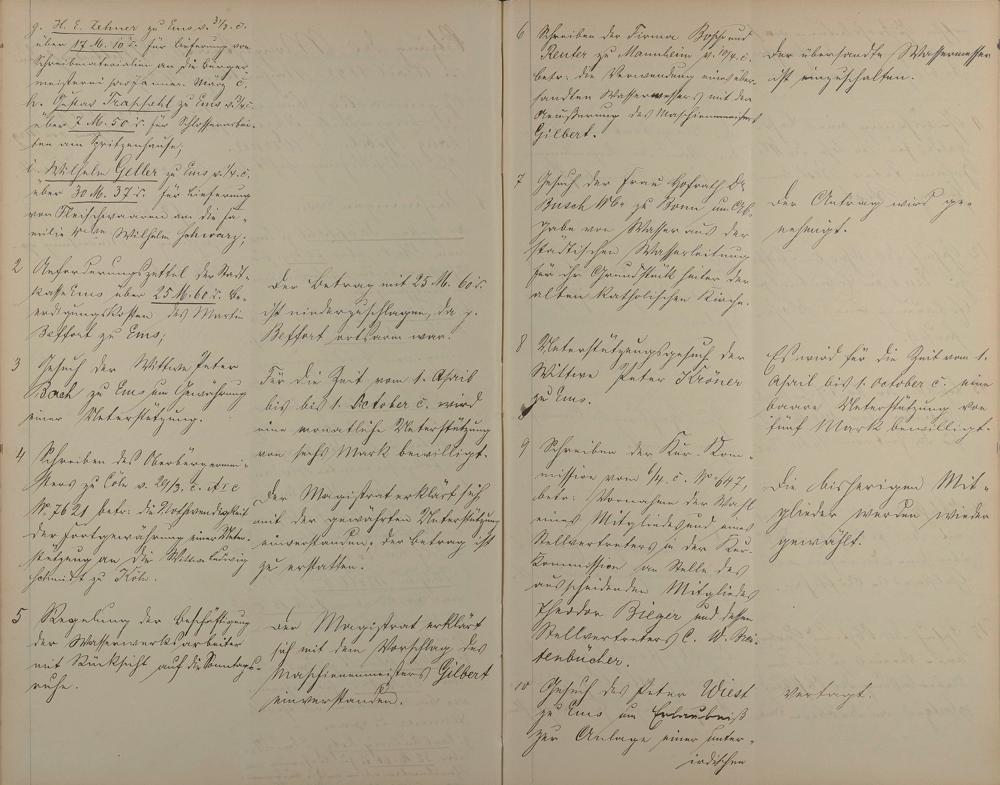 g. H. E. Zehner zu Ems v. 31/3. c.
über 17 M. 10 d. für Lieferung von
Schreibmaterialien an die Bürger-
meisterei pro Januar-März c.
h. Gustav zu Ems v. 1/4. c.
über 7 M. 50 d. für Schlosserarbei-
ten am Spritzenhause;
i. Wilhelm Geller zu Ems v. 1/4. c.
über 30 M. 37 d. für Lieferung
von Fleischwaaren an die Fa-
milie Wilhelm Schwarz;
2 Anforderungszettel der Stadt-
kasse Ems über 25 M. 60 d. Be-
erdigungskosten des Martin
Beffort zu Ems;
Der Betrag mit 25 M. 60 d.
ist niederzuschlagen, da p.
Beffort ortsarm war.
3 Gesuch der Wittwe Peter
Bach zu Ems um Gewährung
einer Unterstützung.
Für die Zeit vom 1. April
bis bis 1. October c. wird
eine monatliche Unterstützung
von sechs Mark bewilligt.
4 Schreiben des Oberbürgermei-
sters zu Cöln v. 29/3. c.
No. 7621 betr: die Nothwendigkeit
der Fortgewährung einer Unter-
stützung an die Wittwe Ludwig
Schmidt zu Köln.
Der Magistrat erklärt sich
mit der gewährten Unterstützung
einverstanden, der Betrag ist
zu erstatten.
5 Regelung der Beschäftigung
der Wasserwerksarbeiter
mit Rücksicht auf die Sonntags-
ruhe.
Der Magistrat erklärt
sich mit dem Vorschlag des
Maschienenmeisters Gilbert
einverstanden.
6 Schreiben der Firma Bopp und
Reuter zu Mannheim v. 10/4. c.
betr: die Verwendung eines über-
sandten Wassermessers mit der
Aeußerung des Maschienenmeisters
Gilbert.
Der übersandte Wassermesser
ist einzuschalten.
7 Gesuch der Frau Hofrath Dr
Busch Wwe zu Bonn um Ab-
gabe von Wasser aus der
städtischen Wasserleitung
für ihr Grundstück hinter der
alten katholischen Kirche.
Der Antrag wird ge-
nehmigt.
8 Unterstützungsgesuch der
Wittwe Peter Kröner
zu Ems.
Es wird für die Zeit vom 1.
April bis 1. October c. eine
baare Unterstützung von
fünf Mark bewilligt.
9 Schreiben der Kur-Kom-
mission vom 6/4. c. No 647,
betr: Vornahme der Wahl
eines Mitgliedes und eines
Stellvertreters in der Kur-
Kommission an Stelle des
ausscheidenden Mitgliedes
Theodor Bieger und dessen
Stellvertreters C. W.
tenbücher.
Die bisherigen Mit-
glieder werden wieder
gewählt.
10 Gesuch des Peter Wiest
zu Ems um Erlaubniß
zur Anlage einer unter-
irdischen
Vertagt.